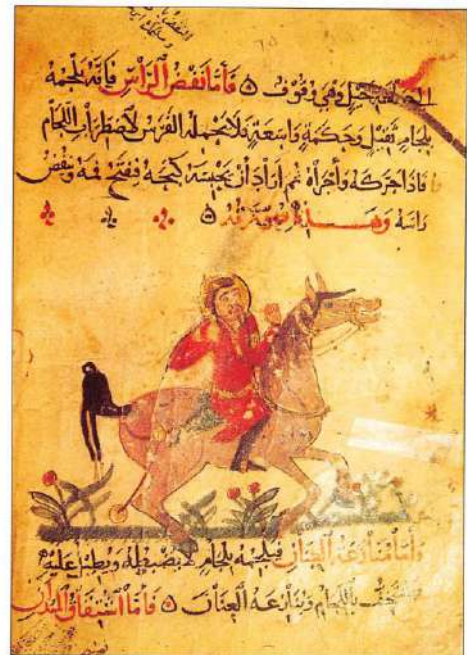 الخيل وهي وقوف ۞ فأما نفض الرأس فانه يلجمه
بلجام ثقيل وحكمة واسعة فلا يحمله الفرس لاضطراب اللجام
فاذا حركه وأجراه ثم أراد أن يحبسه كبحه ففتح فمه ونفض
راسه وهذه صورته ۞
وأما منازعة العنان فيلجمه بلجام يضبطه ويطيل عليه
باللجام وينازعه العنان ۞ فأما استيفاق